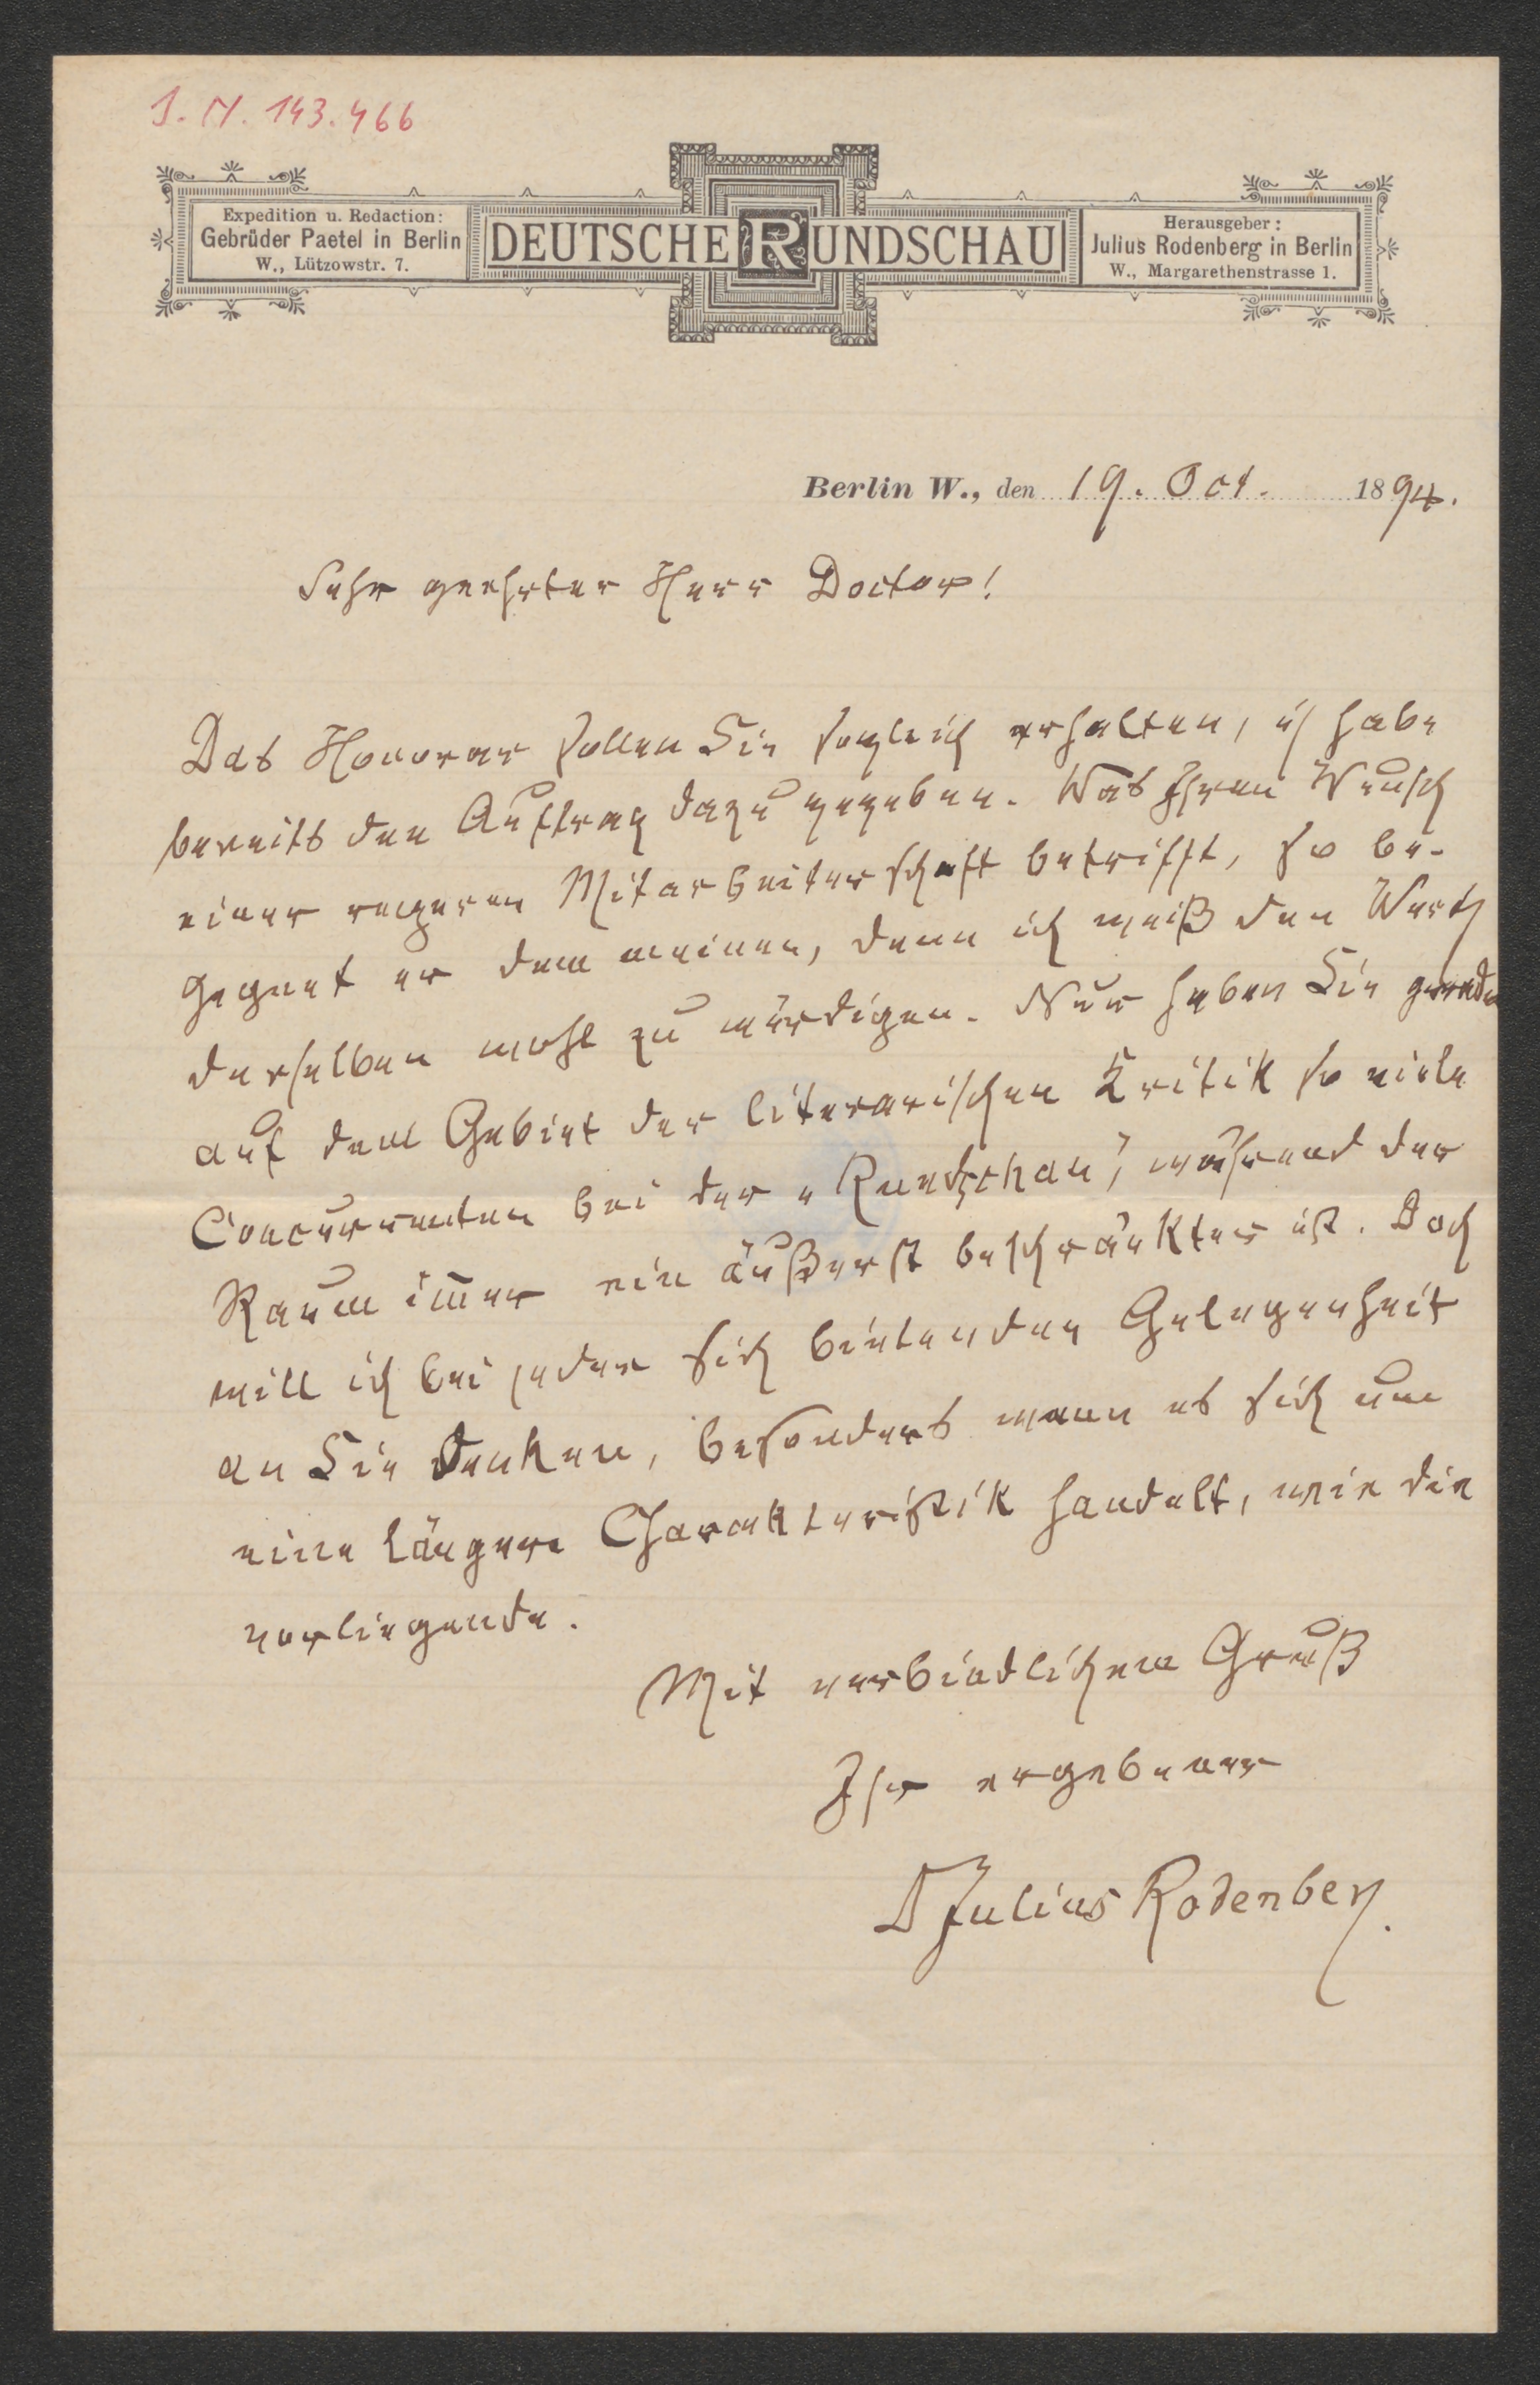 I. N. 143.466
Expedition u. Redaction:
Gebrüder Paetel in Berlin
W., Lützowstr. 7.
DEUTSCHE RUNDSCHAU
Herausgeber:
Julius Rodenberg in Berlin
W., Margarethenstrasse 1.
Berlin W., den 19. Oct. 1894.
Sehr geehrter Herr Doctor!
Das Honorar sollen Sie sogleich erhalten, ich habe
bereits den Auftrag dazu gegeben. Was Ihren Wunsch
einer regeren Mitarbeiterschaft betrifft, so be-
gegnet er dem meinen, denn ich weiß den Werth
derselben wohl zu würdigen. Nur haben Sie gerade
auf dem Gebiet der literarischen Kritik so viele
Concurrenten bei der „Rundschau", während der
Raum im̅er ein äußerst beschränkter ist. Doch
will ich bei jeder sich bietenden Gelegenheit
an Sie denken, besonders wenn es sich um
eine längere Charakteristik handelt, wie die
vorliegende.
Mit verbindlichem Gruß
Ihr ergebener
D Julius Rodenberg.